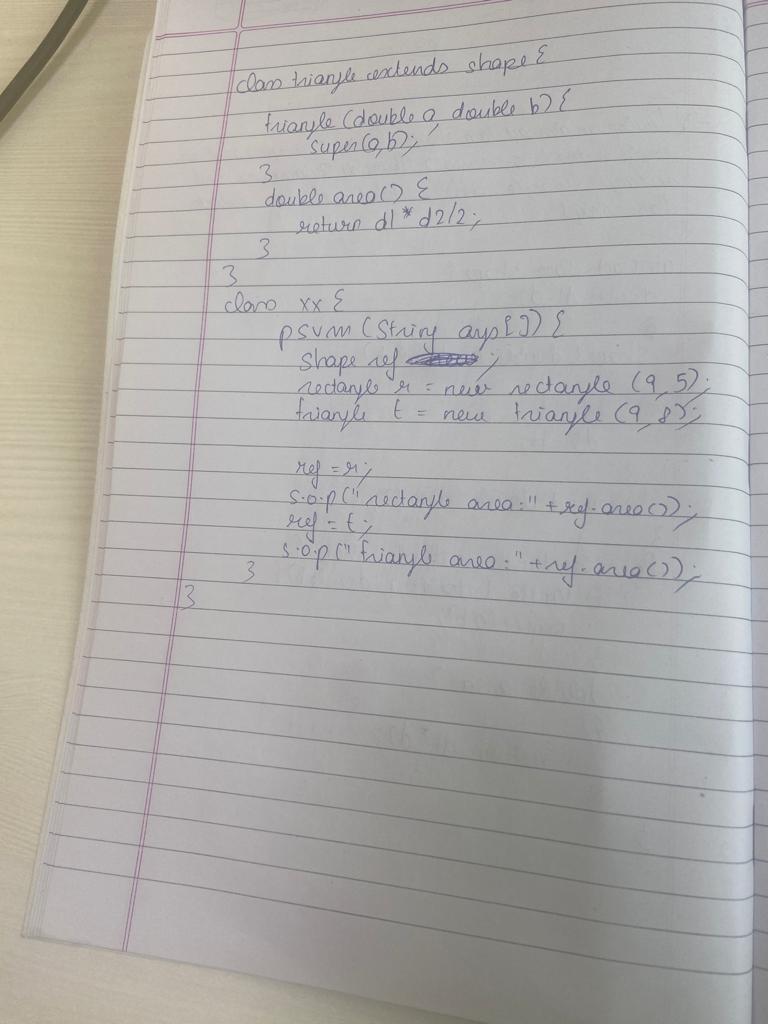 class triangle extends shape {
triangle (double a, double b) {
super(a,b);
}
double area() {
return d1 * d2/2;
}
}
class xx {
psvm (String args[]) {
Shape ref ;
rectangle r = new rectangle (9,5);
triangle t = new triangle (9,8);
ref = r;
s.o.p("rectangle area:" + ref.area());
ref = t;
s.o.p("triangle area:" + ref.area());
}
}